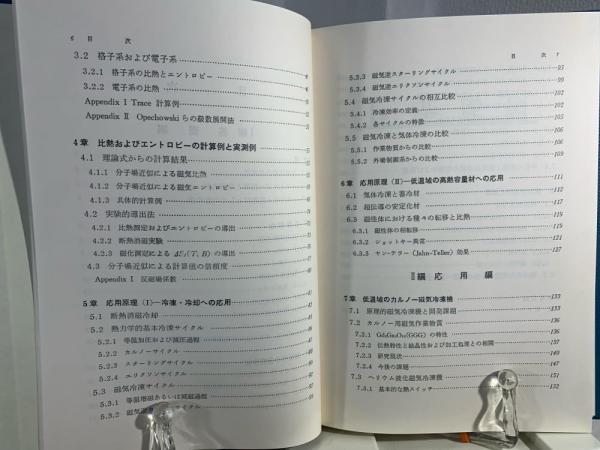 6 目 次
3.2 格子系および電子系
3.2.1 格子系の比熱とエントロピー
3.2.2 電子系の比熱
Appendix I Trace 計算例
Appendix II Opechowski らの級数展開法
4章 比熱およびエントロピーの計算例と実測例
4.1 理論式からの計算結果
4.1.1 分子場近似による磁気比熱
4.1.2 分子場近似による磁気エントロピー
4.1.3 具体的計算例
4.2 実験的導出法
4.2.1 比熱測定およびエントロピーの導出
4.2.2 断熱消磁実験
4.2.3 磁化測定による ΔSJ(T, B) の導出
4.3 分子場近似による計算値の信頼度
Appendix I 反磁場係数
5章 応用原理(I)—冷凍・冷却への応用
5.1 断熱消磁冷却
5.2 熱力学的基本冷凍サイクル
5.2.1 等温加圧および減圧過程
5.2.2 カルノーサイクル
5.2.3 スターリングサイクル
5.2.4 エリクソンサイクル
5.3 磁気冷凍サイクル
5.3.1 等温増磁あるいは減磁過程
5.3.2 磁気 サイクル
目 次 7
5.3.3 磁気逆スターリングサイクル 95
5.3.4 磁気逆エリクソンサイクル 99
5.4 磁気冷凍サイクルの相互比較 102
5.4.1 冷凍効率の定義
5.4.2 各サイクルの特徴
5.5 磁気冷凍と気体冷凍の比較
5.5.1 作業物質からの比較
5.5.2 外場制御系からの比較
6章 応用原理(II)—低温域の高熱容量材への応用 111
6.1 気体冷凍と蓄冷材 112
6.2 超伝導の安定化材
6.3 磁性体における種々の転移と比熱
6.3.1 磁性体の相転移
6.3.2 ショットキー異常
6.3.3 ヤン・テラー(Jahn-Teller)効果 127
II編 応用編
7章 低温域のカルノー磁気冷凍機 133
7.1 原理的磁気冷凍機と開発課題 133
7.2 カルノー用磁気作業物質
7.2.1 Gd3Ga5O12(GGG) の特性
7.2.2 伝熱特性と結晶性および加工処理との相関
7.2.3 研究現況 147
7.2.4 今後の課題
7.3 ヘリウム液化磁気冷凍機 151
7.3.1 基本的な熱スイッチ 152